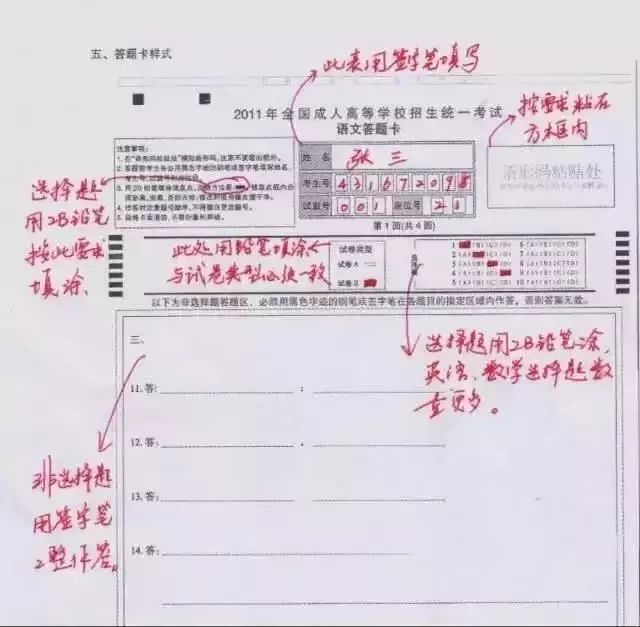 五、答题卡样式
此表用签字笔填写
2011年全国成人高等学校招生统一考试
语文答题卡
按要求粘在
方木区内
注意事项：
条形码粘贴处
姓名 张三
考生号 431672098
试室号 001 座位号 21
第1面(共4面)
选择题
用2B铅笔
按此要求
填涂、
此处用铅笔填涂
与试卷类型必须一致
试卷类型
试卷A
试卷B
选择题
1 (A)(B)(C)(D) 6 (A)(B)(C)(D)
2 (A)(B)(C)(D) 7 (A)(B)(C)(D)
3 (A)(B)(C)(D) 8 (A)(B)(C)(D)
4 (A)(B)(C)(D) 9 (A)(B)(C)(D)
5 (A)(B)(C)(D) 10 (A)(B)(C)(D)
以下为非选择题答题区，必须用黑色字迹的钢笔或签字笔在各题目的指定区域内作答，否则答案无效。
选择题用2B铅笔涂，
英语、数学选择题数
量更多。
三、
11.答：
12.答：
13.答：
14.答：
非选择题
用签字笔
工整作答。